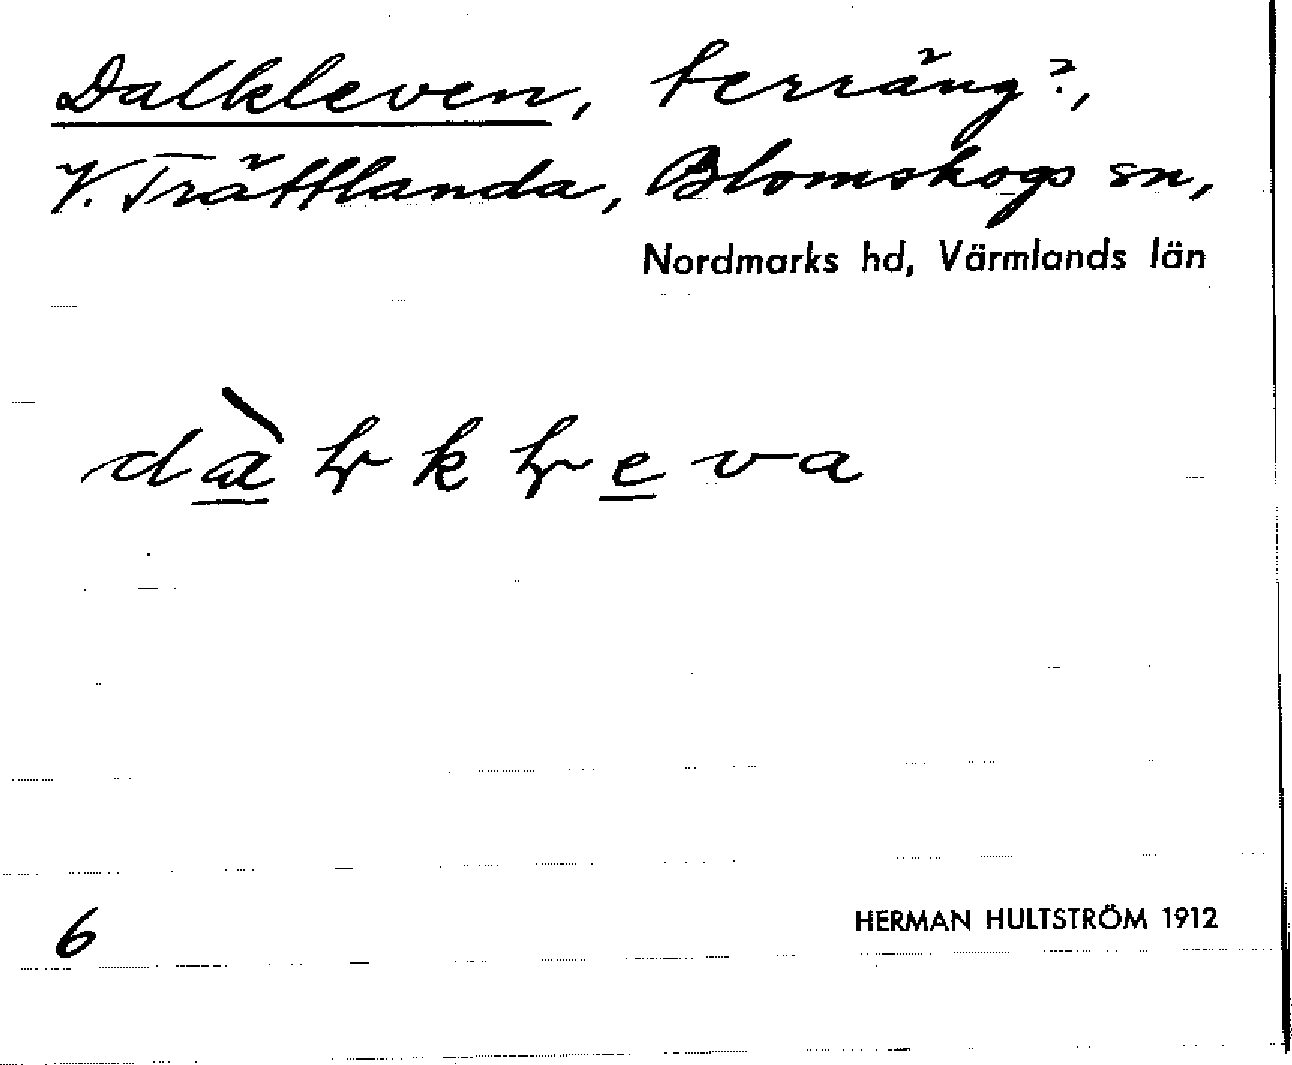 Dalkleven, terräng?,
V. Trättlanda, Blomskogs sn,
Nordmarks hd, Värmlands län
6
HERMAN HULTSTRÖM 1912